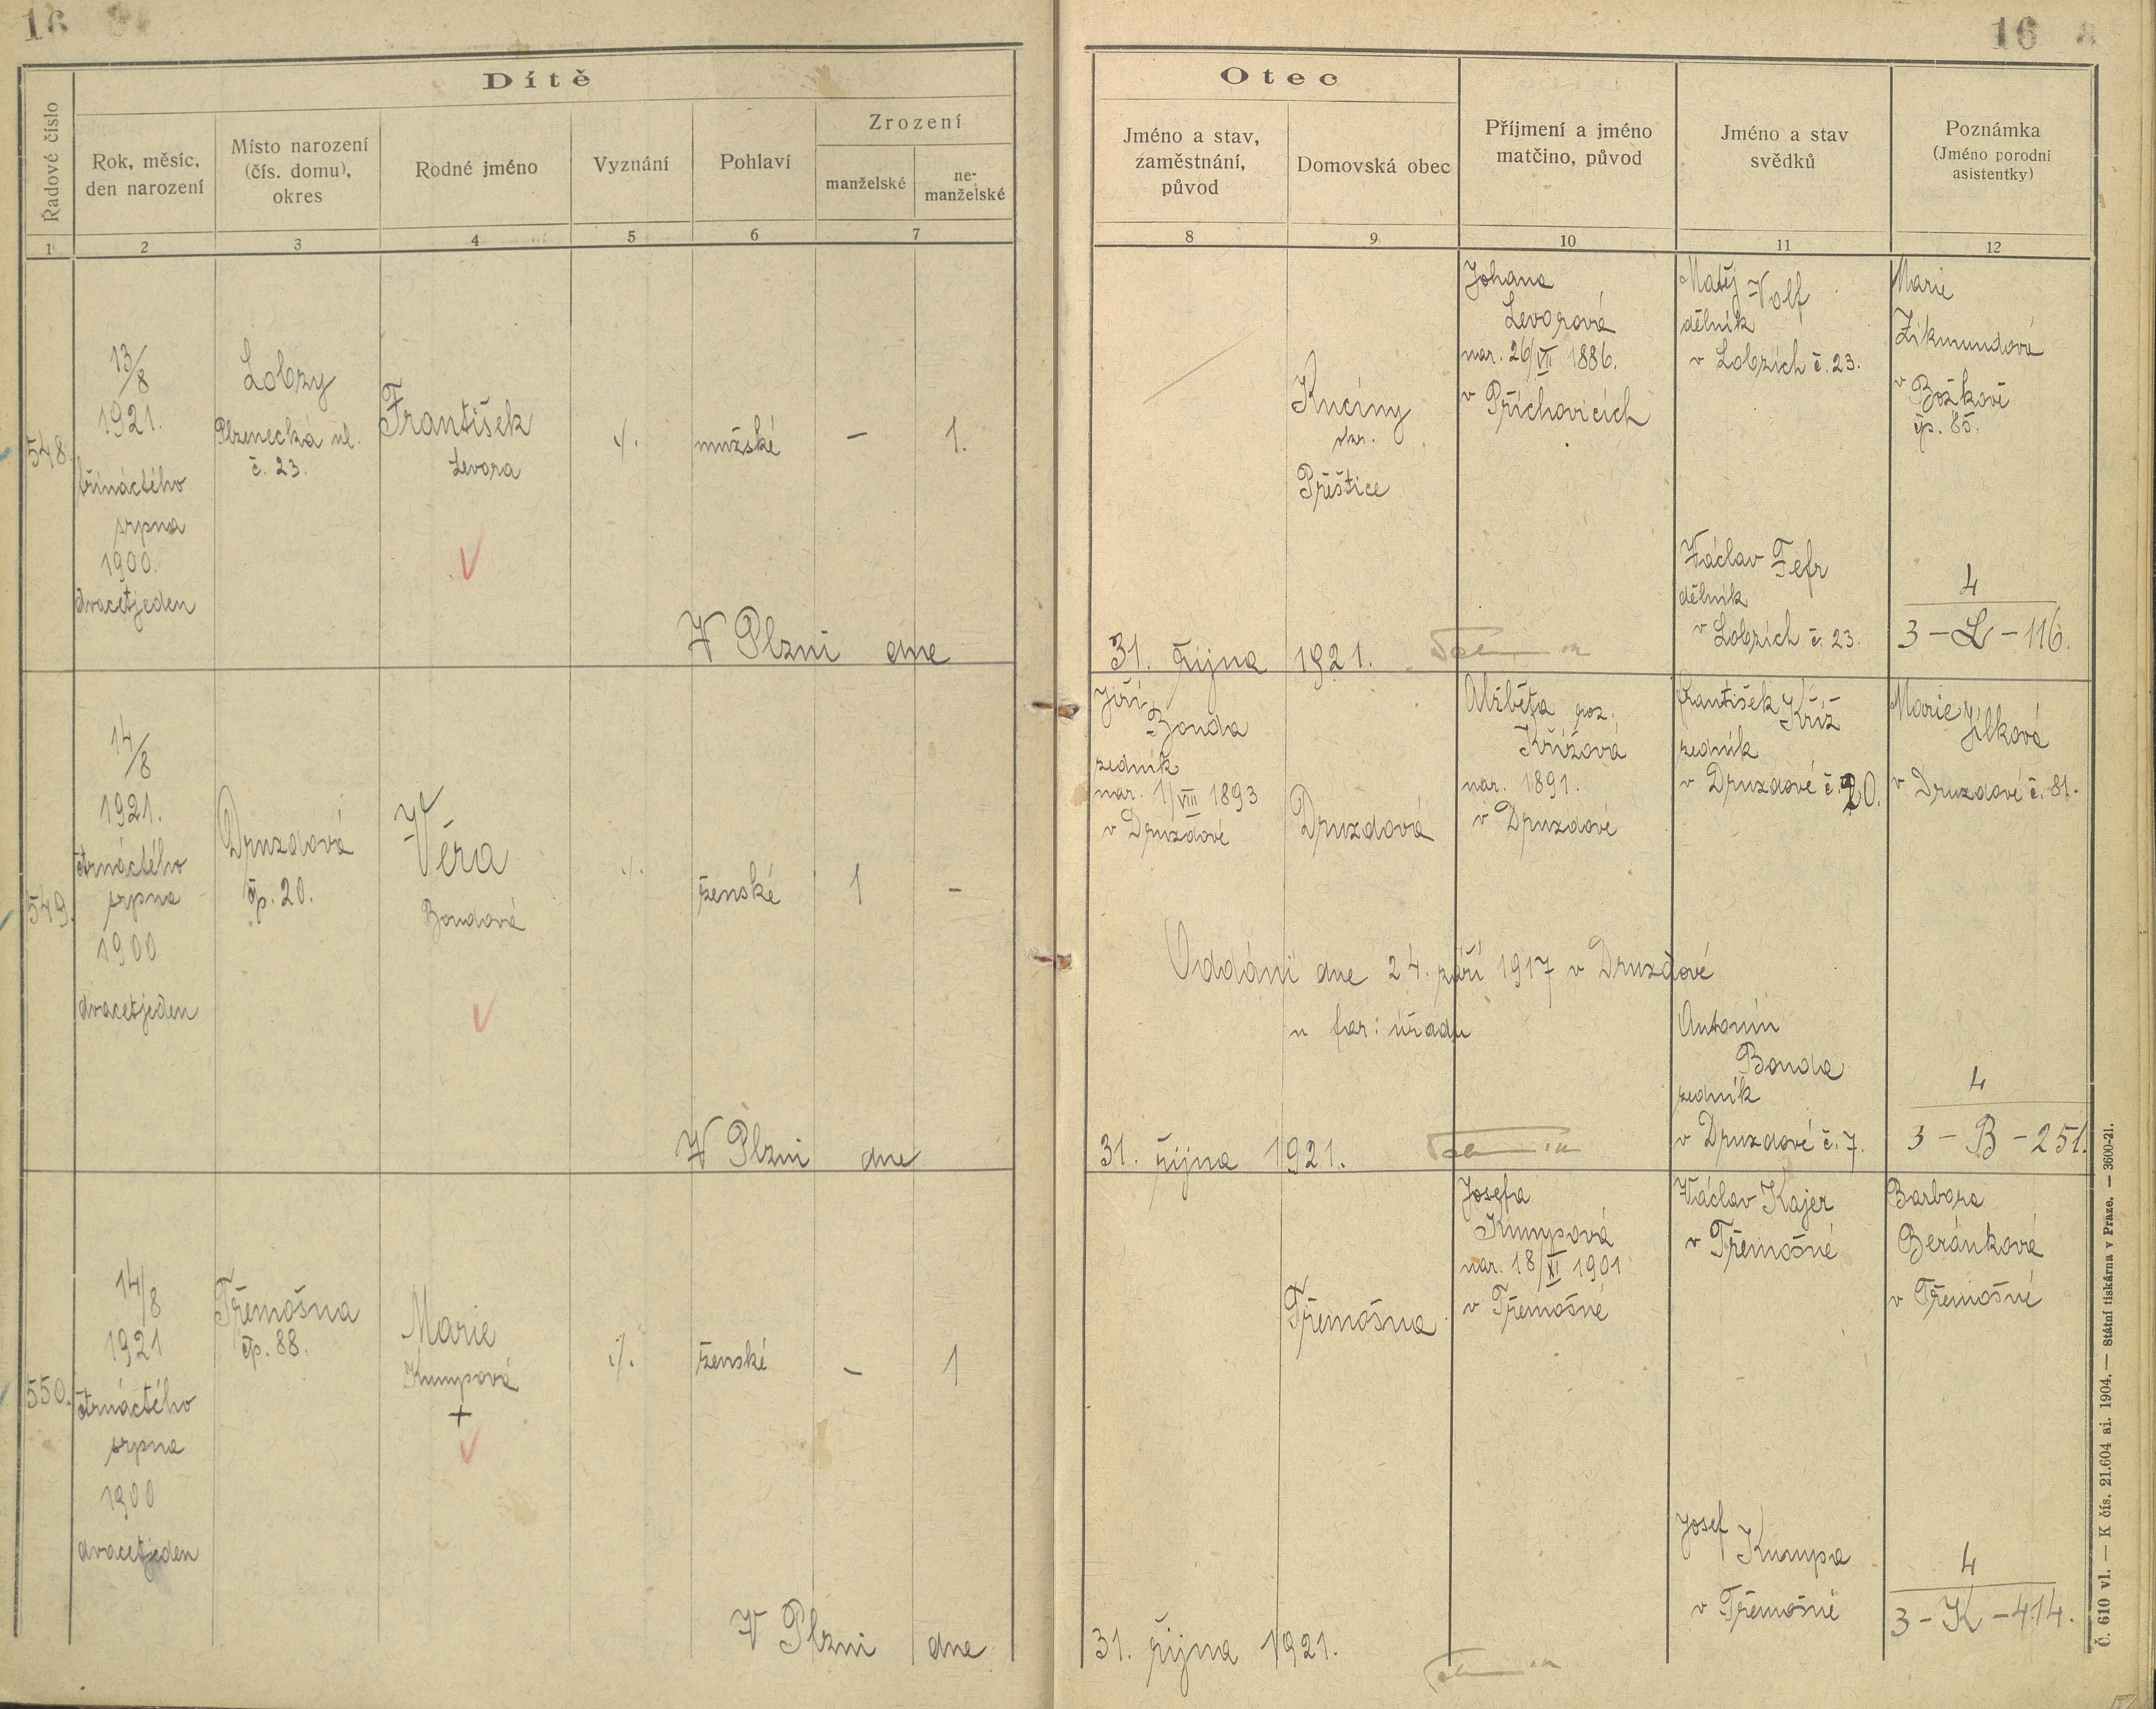 16
16
Dítě
Řadové číslo
Rok, měsíc,
den narození
Místo narození
(čís. domu),
okres
Rodné jméno
Vyznání
Pohlaví
Zrození
manželské
ne-
manželské
1
2
3
4
5
6
7
Otec
Jméno a stav,
zaměstnání,
původ
Domovská obec
Příjmení a jméno
matčino, původ
Jméno a stav
svědků
Poznámka
(Jméno porodní
asistentky)
8
9
10
11
12
548.
13/8
1921.
třináctého
srpna
1900.
dvacetjeden
Lobzy
Plzenecká ul.
č. 23.
František
Levora
./.
mužské
—
1.
Kucíny
okr.
Přeštice
Johana
Levorová
nar. 26/VII 1886.
v Příchovicích
Matěj Volf
dělník
v Lobzích č. 23.
Václav Fefr
dělník
v Lobzích č. 23.
Marie
Zikmundová
v Božkově
čp. 85.
4
3 - L - 116.
V Plzni dne
31. října 1921.
549.
14/8
1921.
čtrnáctého
srpna
1900
dvacetjeden
Druzdová
čp. 20.
Věra
Bondová
./.
ženské
1
—
Jiří
Bonda
zedník
nar. 1/VIII 1893
v Druzdové
Druzdová
Alžběta roz.
Křížová
nar. 1891.
v Druzdové
František Kříž
zedník
v Druzdové č. 20.
Marie Jílková
v Druzdové č. 81.
Oddáni dne 24. září 1917 v Druzdové
u far: úřadu
Antonín
Bonda
zedník
v Druzdové č. 7.
4
3 - B - 251.
V Plzni dne
31. října 1921.
550.
14/8
1921
čtrnáctého
srpna
1900
dvacetjeden
Třemošna
čp. 88.
Marie
Kumpová
+
./.
ženské
—
1
Třemošna
Josefa
Kumpová
nar. 18/XI 1901
v Třemošné
Václav Kajer
v Třemošné
Josef
Kumpa
v Třemošné
Barbora
Beránková
v Třemošné
4
3 - K - 414.
V Plzni dne
31. října 1921.
Č. 610 vl. — K čís. 21.604 ai. 1904. — Státní tiskárna v Praze. — 3600-21.